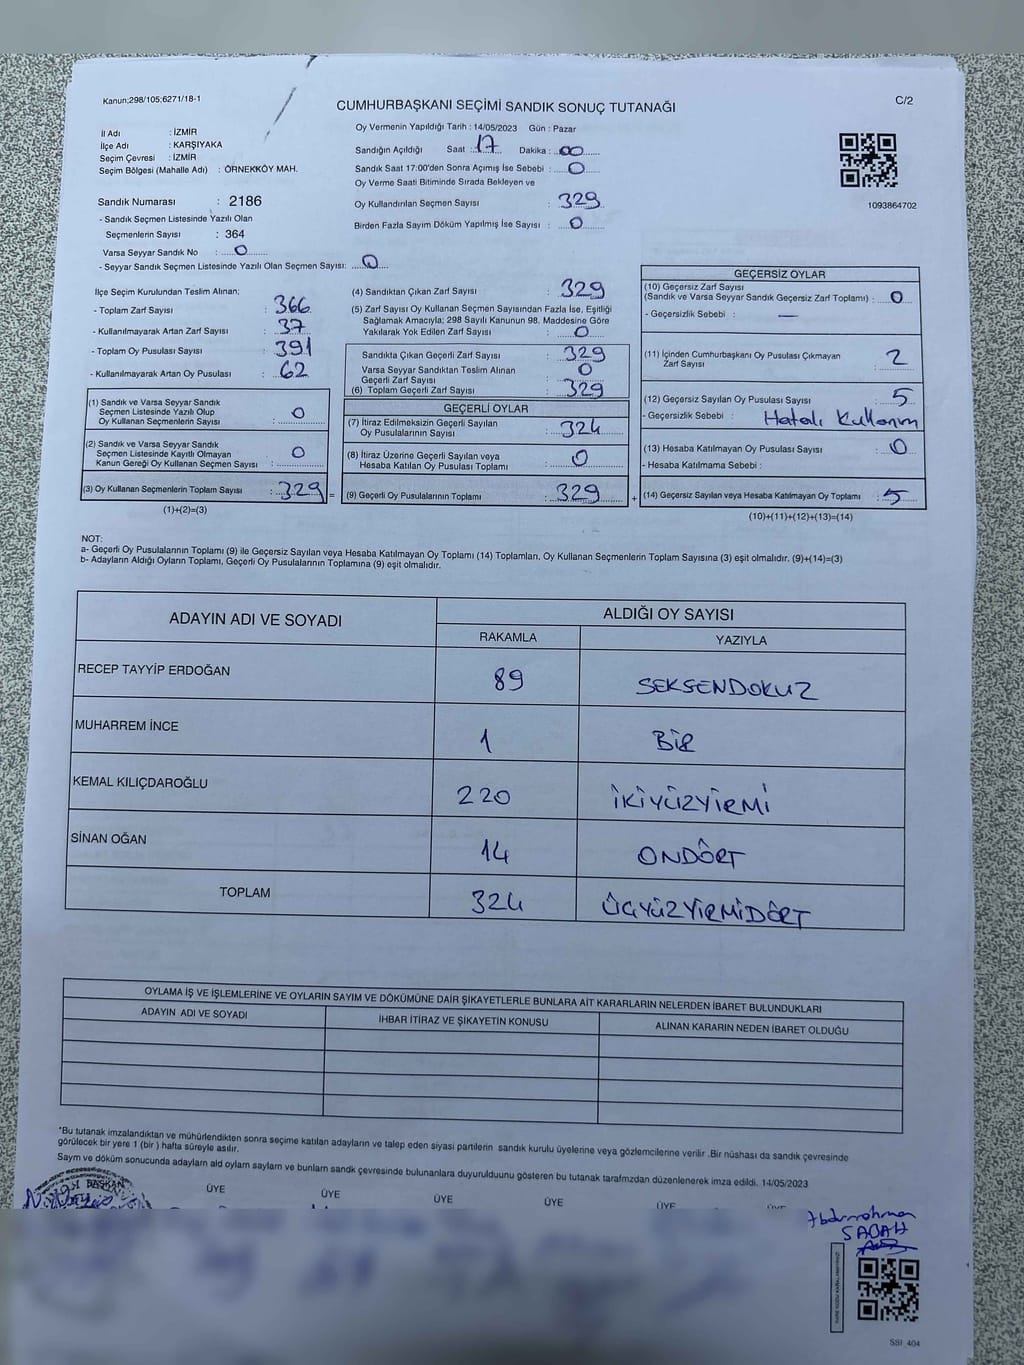 Kanun;298/105;6271/18-1
C/2
CUMHURBAŞKANI SEÇİMİ SANDIK SONUÇ TUTANAĞI
İl Adı : İZMİR
İlçe Adı : KARŞIYAKA
Seçim Çevresi : İZMİR
Seçim Bölgesi (Mahalle Adı) : ÖRNEKKÖY MAH.
Sandık Numarası : 2186
- Sandık Seçmen Listesinde Yazılı Olan
Seçmenlerin Sayısı : 364
Varsa Seyyar Sandık No : 0
- Seyyar Sandık Seçmen Listesinde Yazılı Olan Seçmen Sayısı: 0
Oy Vermenin Yapıldığı Tarih : 14/05/2023 Gün : Pazar
Sandığın Açıldığı Saat : 17 Dakika : 00
Sandık Saat 17:00'den Sonra Açımış İse Sebebi : 0
Oy Verme Saati Bitiminde Sırada Bekleyen ve
Oy Kullandırılan Seçmen Sayısı : 329
Birden Fazla Sayım Döküm Yapılmış İse Sayısı : 0
1093864702
İlçe Seçim Kurulundan Teslim Alınan;
- Toplam Zarf Sayısı : 366
- Kullanılmayarak Artan Zarf Sayısı : 37
- Toplam Oy Pusulası Sayısı : 391
- Kullanılmayarak Artan Oy Pusulası : 62
(1) Sandık ve Varsa Seyyar Sandık
Seçmen Listesinde Yazılı Olup
Oy Kullanan Seçmenlerin Sayısı : 0
(2) Sandık ve Varsa Seyyar Sandık
Seçmen Listesinde Kayıtlı Olmayan
Kanun Gereği Oy Kullanan Seçmen Sayısı : 0
(3) Oy Kullanan Seçmenlerin Toplam Sayısı : 329 =
(1)+(2)=(3)
(4) Sandıktan Çıkan Zarf Sayısı : 329
(5) Zarf Sayısı Oy Kullanan Seçmen Sayısından Fazla İse, Eşitliği
Sağlamak Amacıyla; 298 Sayılı Kanunun 98. Maddesine Göre
Yakılarak Yok Edilen Zarf Sayısı : 0
Sandıkta Çıkan Geçerli Zarf Sayısı : 329
Varsa Seyyar Sandıktan Teslim Alınan
Geçerli Zarf Sayısı : 0
(6) Toplam Geçerli Zarf Sayısı : 329
GEÇERLİ OYLAR
(7) İtiraz Edilmeksizin Geçerli Sayılan
Oy Pusulalarının Sayısı : 324
(8) İtiraz Üzerine Geçerli Sayılan veya
Hesaba Katılan Oy Pusulası Toplamı : 0
(9) Geçerli Oy Pusulalarının Toplamı : 329 +
GEÇERSİZ OYLAR
(10) Geçersiz Zarf Sayısı
(Sandık ve Varsa Seyyar Sandık Geçersiz Zarf Toplamı) : 0
- Geçersizlik Sebebi : —
(11) İçinden Cumhurbaşkanı Oy Pusulası Çıkmayan
Zarf Sayısı : 2
(12) Geçersiz Sayılan Oy Pusulası : 5
- Geçersizlik Sebebi : Hatalı Kullanım
(13) Hesaba Katılmayan Oy Pusulası Sayısı : 0
- Hesaba Katılmama Sebebi :
(14) Geçersiz Sayılan veya Hesaba Katılmayan Oy Toplamı : 5
(10)+(11)+(12)+(13)=(14)
NOT:
a- Geçerli Oy Pusulalarının Toplamı (9) ile Geçersiz Sayılan veya Hesaba Katılmayan Oy Toplamı (14) Toplamları, Oy Kullanan Seçmenlerin Toplam Sayısına (3) eşit olmalıdır. (9)+(14)=(3)
b- Adayların Aldığı Oyların Toplamı, Geçerli Oy Pusulalarının Toplamına (9) eşit olmalıdır.
ADAYIN ADI VE SOYADI ALDIĞI OY SAYISI
RAKAMLA YAZIYLA
RECEP TAYYİP ERDOĞAN 89 SEKSENDOKUZ
MUHARREM İNCE 1 BİR
KEMAL KILIÇDAROĞLU 220 İKİYÜZYİRMİ
SİNAN OĞAN 14 ONDÖRT
TOPLAM 324 ÜÇYÜZYİRMİDÖRT
OYLAMA İŞ VE İŞLEMLERİNE VE OYLARIN SAYIM VE DÖKÜMÜNE DAİR ŞİKAYETLERLE BUNLARA AİT KARARLARIN NELERDEN İBARET BULUNDUKLARI
ADAYIN ADI VE SOYADI İHBAR İTİRAZ VE ŞİKAYETİN KONUSU ALINAN KARARIN NEDEN İBARET OLDUĞU
*Bu tutanak imzalandıktan ve mühürlendikten sonra seçime katılan adayların ve talep eden siyasi partilerin sandık kurulu üyelerine veya gözlemcilerine verilir .Bir nüshası da sandık çevresinde
görülecek bir yere 1 (bir ) hafta süreyle asılır.
Sayım ve döküm sonucunda adayların ald oyların sayları ve bunların sandk çevresinde bulunanlara duyurulduunu gösteren bu tutanak tarafmzdan düzenlenerek imza edildi. 14/05/2023
BAŞKAN ÜYE ÜYE ÜYE ÜYE ÜYE
Abdurrahman
SABAH
SSİ_404